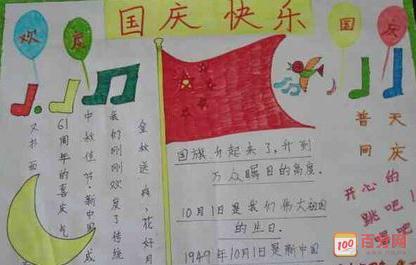 国庆快乐
欢
庆
国
庆
金秋送爽,花好月
我们刚刚欢度了传统
中秋佳节,新中国成
61周年的喜庆气
又扑面
国旗升起来了,升到
万众瞩目的高度.
10月1日是我们伟大祖国
的生日.
1949年10月1日是新中国
普天
同庆
开心的
跳吧!
100 百分网